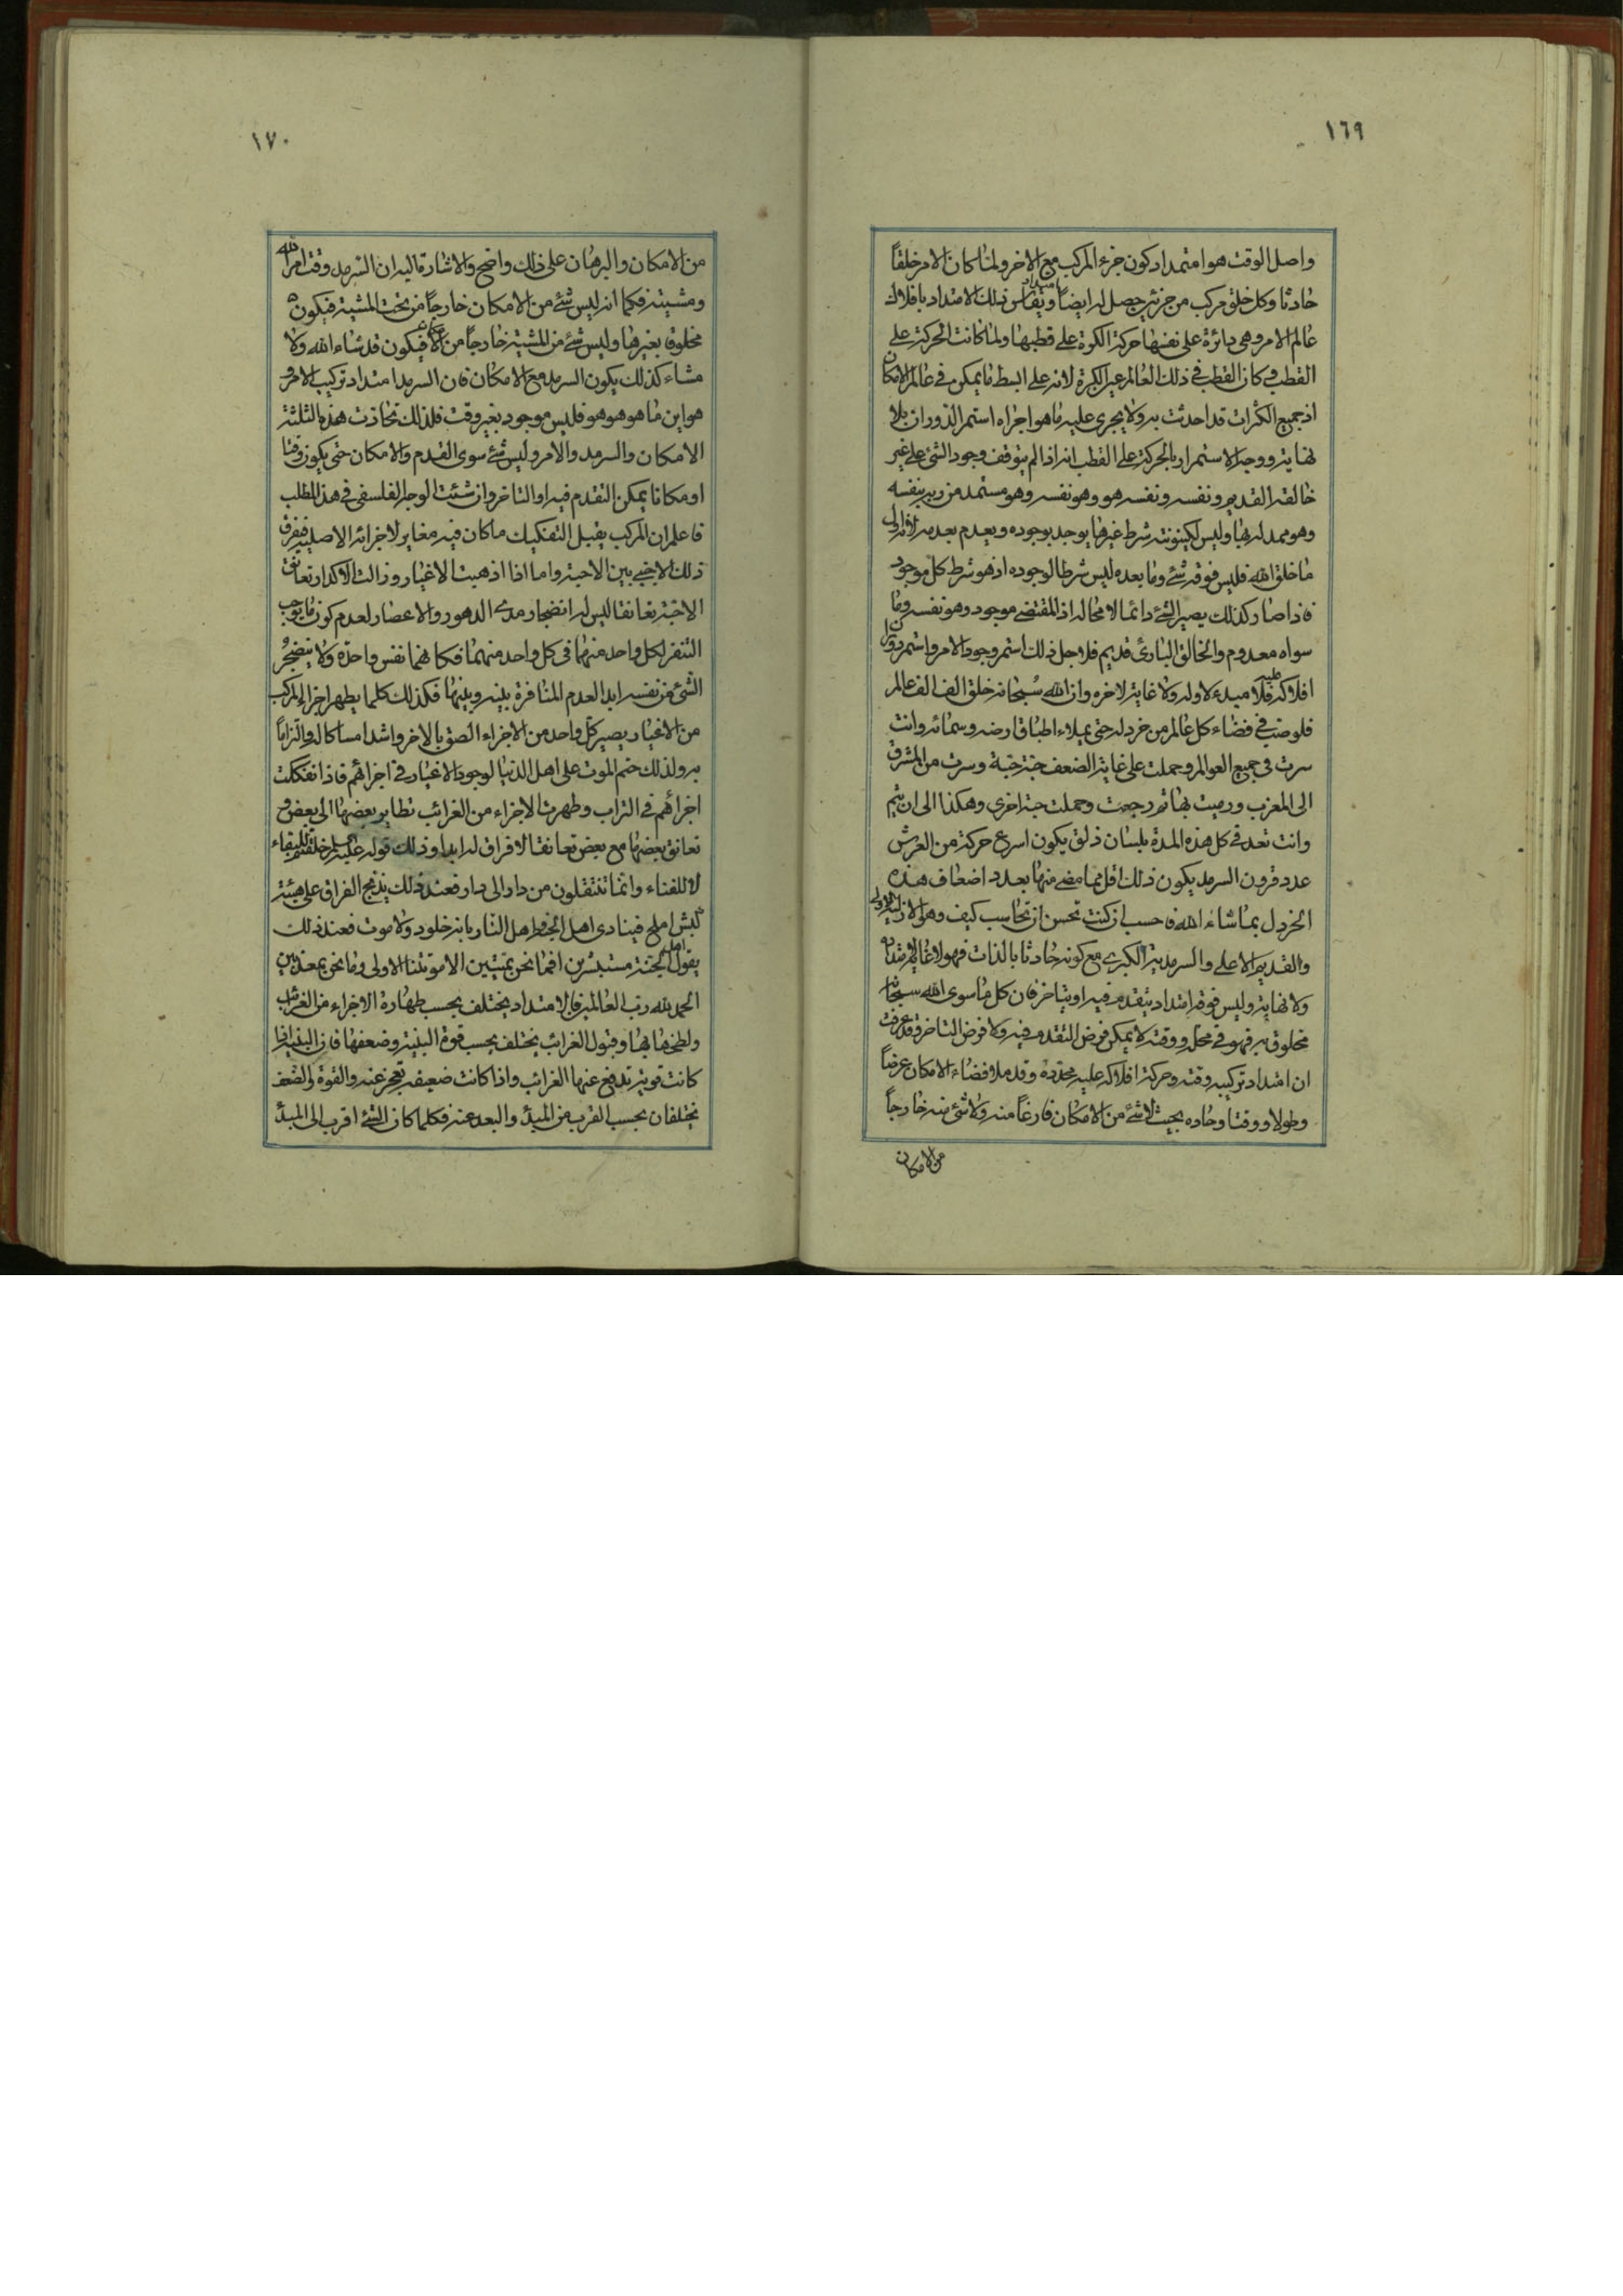 ١٦٩
واصل الوقت هو امتداد كون جزء المركب مع الاخر ولما كان الامر خلقاً
حادثا وكل خلق مركب من جزئين حصل له ايضاً امتداد ويقاس ذلك الامتداد بافلاك
عالم الامر وهي دائرة على نفسها حركة الكرة على قطبها ولما كانت الحركة على
القطب كان القطب في ذلك العالم عين الكرة لانه على ابسط ما يمكن في عالم الامكان
اذ جميع الكثرات قد احدثت به ولا يجرى عليه ما هو اجراه استمر الدوران بلا
نهاية ووجه الاستمرار بالحركة على القطب انه اذا لم يتوقف وجود الشئ على غير
خالقه القديم ونفسه ونفسه هو وهو نفسه وهو مستمد من ربه بنفسه
وهو ممد له بها وليس لكينونته شرط غيرها يوجد بوجوده ويعدم بعدمه لانه اول
ما خلق الله فليس فوقه شئ وما بعده ليس شرطا لوجوده اذ هو شرط كل موجود
فاذا صار كذلك يصير الشئ دائما لا محالة اذ المقتضى موجود وهو نفسه وما
سواه معدوم والخالق البارئ قديم فلاجل ذلك استمر وجود الامر واستمر دوران
افلاكه عليه فلا مبدء لاوله ولا غاية لاخره وان الله سبحانه خلق الف الف عالم
فلو صب في فضاء كل عالم من خردل حتى يملاء اطباق ارضه وسمائه وانت
سرت في جميع العوالم وحملت على غاية الضعف حبة حبة وسرت من المشرق
الى المغرب ورميت بها ثم رجعت وحملت حبة اخرى وهكذا الى ان يتم
وانت تعد في كل هذه المدة بلسان ذلق يكون اسرع حركة من العرش
عدد قرون السرمد يكون ذلك اقل مما مضى منها بعدد اضعاف هذه
الخردل بما شاء الله فاحسب ان كنت تحسن ان تحاسب كيف وهو الازلية الاولى
والقديم الاعلى والسرمدية الكبرى مع كونه حادثا بالذات فهو لا غاية لامتداده
ولا نهاية وليس فوقه امتداد يتقدم فيه او يتاخر فان كل ما سوى الله سبحانه
مخلوق به فهو في محله ووقته لا يمكن فرض التقدم فيه ولا فرض التاخر وقد عرفت
ان امتداد تركيبه وقته وحركة افلاكه عليه محددة وقد ملا فضاء الامكان عرضاً
وطولا ووقتا وحاده بحيث لا شئ من الامكان فارغاً منه ولا شئ منه خارجاً
من الامكان
١٧٠
من الامكان والبرهان على ذلك واضح والاشارة اليه ان السرمد وقت امر الله
ومشيته فكما انه ليس شئ من الامكان خارجاً من تحت المشية فيكون
مخلوق بغيرها وليس شئ من المشية خارجاً من الامكان فيكون قد شاء الله ولا
مشاء كذلك يكون السرمد مع الامكان فان السرمد امتداد تركيب الامر و
هو اين ما هو هو هو فليس موجود بغير وقت فلذلك تحاذت هذه الثلثة
الامكان والسرمد والامر وليس شئ سوى القدم والامكان حتى يكون وقتا
او مكانا يمكن التقدم فيه او التاخر وان شئت الوجه الفلسفى في هذا المطلب
فاعلم ان المركب يقبل التفكيك ما كان فيه مغاير لاجزائه الاصلية ففرق
ذلك الاجنبي بين الاحبة واما اذا اذهبت الاغيار وزالت الاكدار تعانق
الاحبة تعانقا ليس له انضجار مدى الدهور والاعصار لعدم كون ما يوجب
التنفر لكل واحد منهما في كل واحد منهما فكانهما نفس واحدة ولا ينضجر
الشئ من نفسه ابدا لعدم المنافرة بينه وبينها فكذلك كلما يطهر اجزاء المركب
من الاغيار يصير كل واحد من الاجزاء الصق بالاخر واشد امساكا له والتزاماً
به ولذلك حتم الموت على اهل الدنيا لوجود الاغيار في اجزائهم فاذا تفككت
اجزائهم في التراب وطهرت الاجزاء من الغرائب تطاير بعضها الى بعض و
تعانق بعضها مع بعض تعانقا لا فراق له ابدا وذلك قوله عليه السلم خلقتم للبقاء
لا للفناء وانما تنتقلون من دار الى دار فعند ذلك يذبح الفراق على هيئة
كبش املح فينادى اهل الجنة واهل النار بانه خلود ولا موت فعند ذلك
يقول اهل الجنة مستبشرين افما نحن بميتين الا موتتنا الاولى وما نحن بمعذبين
الحمد لله رب العالمين فالامتداد يختلف بحسب طهارة الاجزاء من الغرائب
ولطخها بها وقبول الغرائب يختلف بحسب قوة البنية وضعفها فان البنية اذا
كانت قوية تدفع عنها الغرائب واذا كانت ضعيفة تعجز عنه والقوة والضعف
يختلفان بحسب القرب من المبدأ والبعد عنه فكلما كان الشئ اقرب الى المبدأ